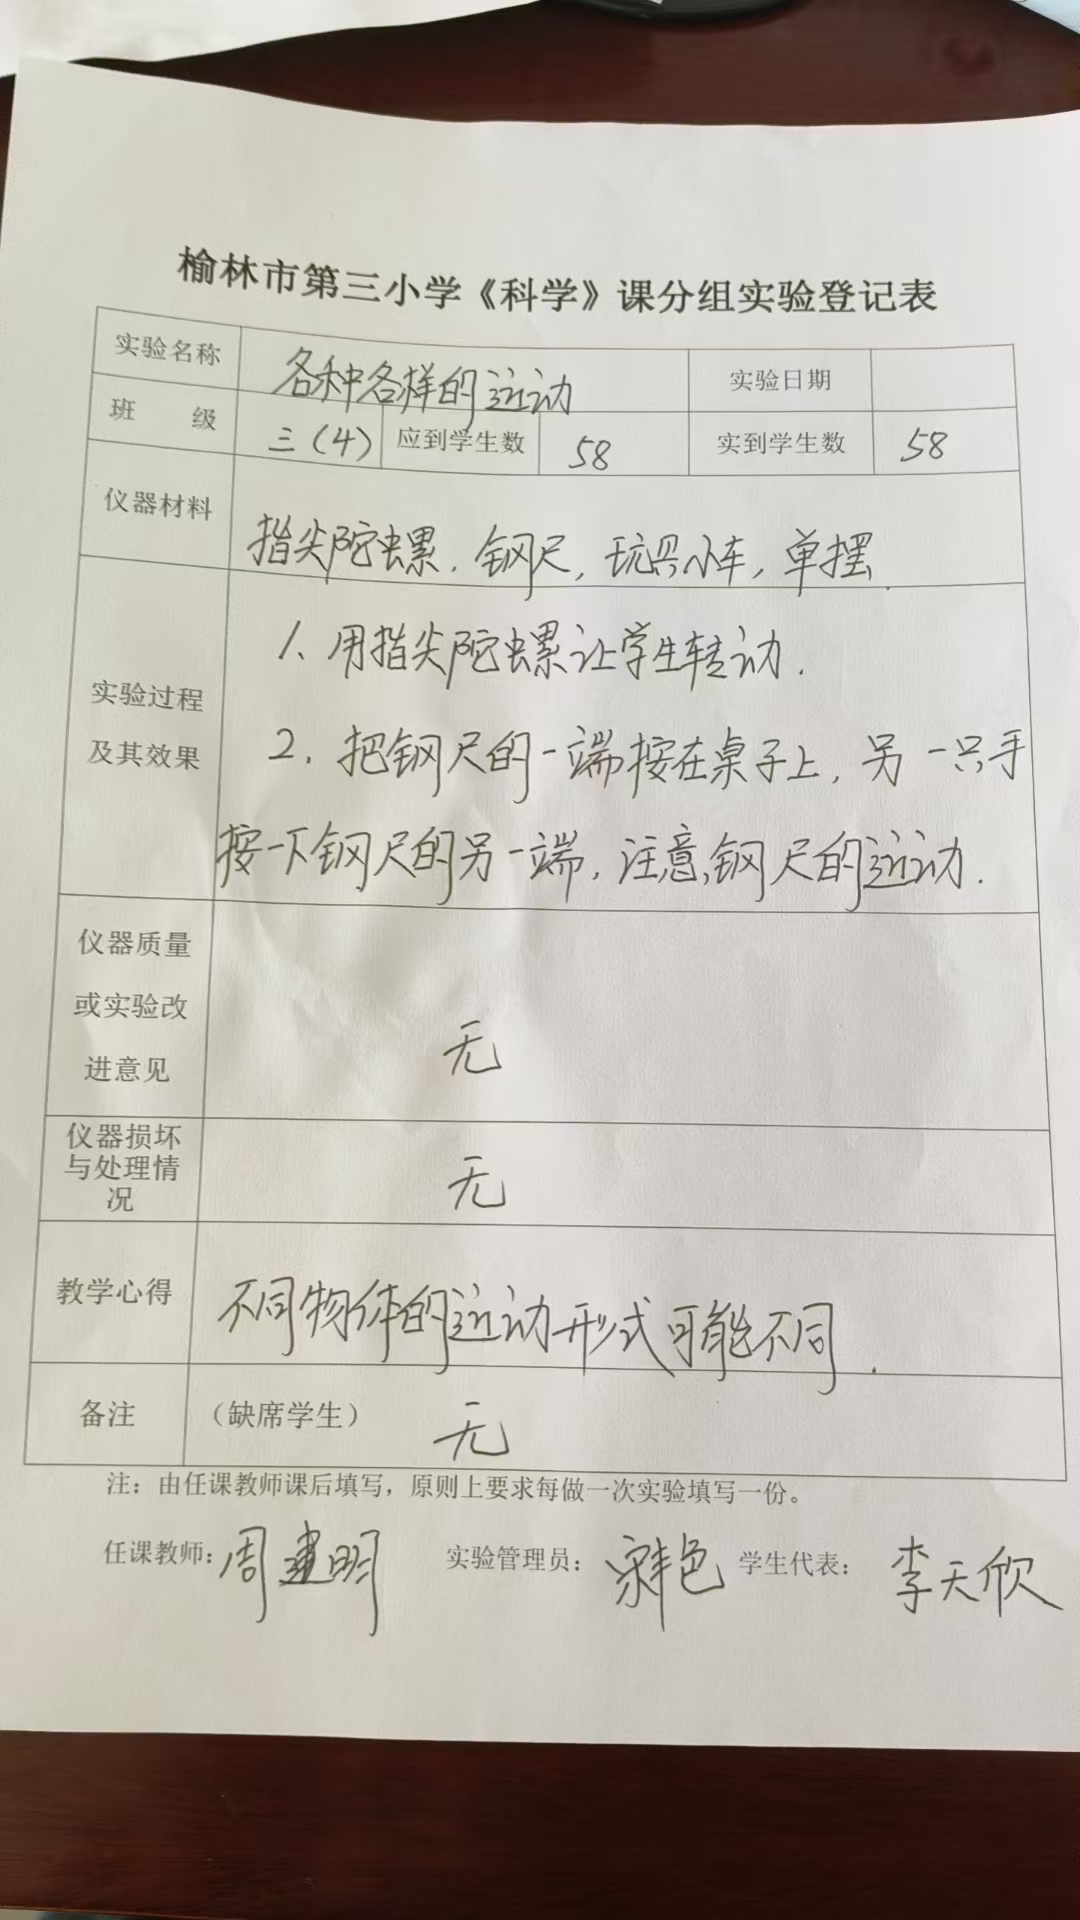 榆林市第三小学《科学》课分组实验登记表
实验名称 各种各样的运动 实验日期
班 级 三（4） 应到学生数 58 实到学生数 58
仪器材料 指尖陀螺，钢尺，玩具小车，单摆.
实验过程及其效果
1、用指尖陀螺让学生转动.
2. 把钢尺的一端按在桌子上，另一只手
按一下钢尺的另一端，注意钢尺的运动.
仪器质量
或实验改
进意见
无
仪器损坏
与处理情
况
无
教学心得 不同物体的运动形式可能不同.
备注 （缺席学生） 无
注：由任课教师课后填写，原则上要求每做一次实验填写一份。
任课教师：周建明 实验管理员： 学生代表：李天欣